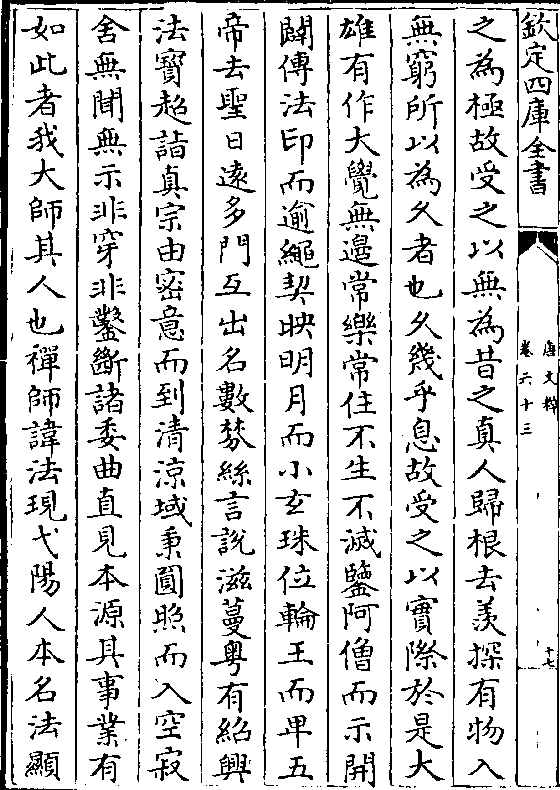 欽定四庫全書
唐文粹
卷六十三
十七
之為極故受之以無為昔之真人歸根去羨探有物入
無窮所以為久者也久幾乎息故受之以實際於是大
雄有作大覺無邉常樂常住不生不滅鑒阿僧而示開
闢傳法印而逾繩契映明月而小玄珠位輪王而卑五
帝去聖日逺多門互出名數棼絲言説滋蔓粤有紹興
法寳超詣真宗由密意而到清涼域秉圓照而入空寂
舍無聞無示非穿非鑿斷諸委曲直見本源其事業有
如此者我大師其人也禪師諱法現弋陽人本名法顯